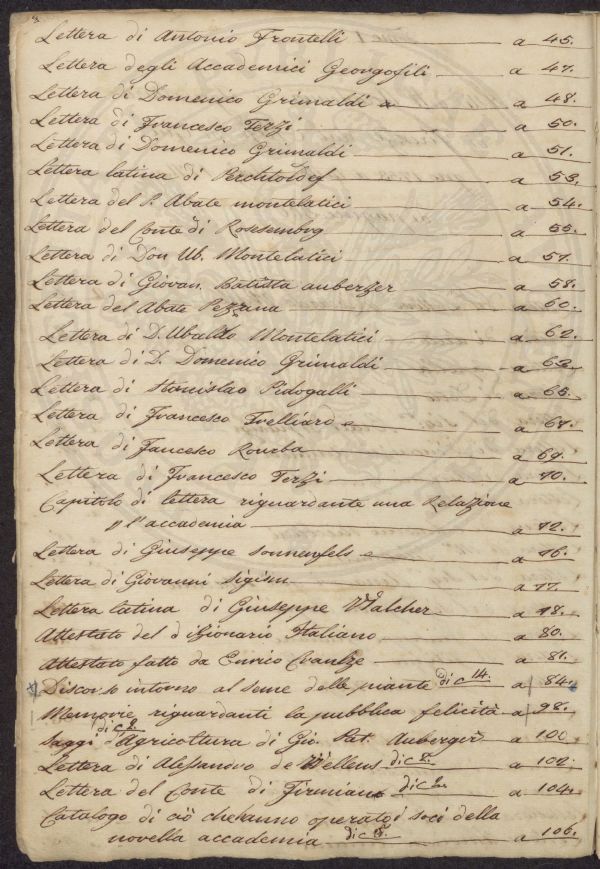 Lettera di Antonio Frontelli a 45.
Lettera degli Accademici Georgofili a 47.
Lettera di Domenico Grimaldi a 48.
Lettera di Francesco Terzi a 50.
Lettera di Domenico Grimaldi a 51.
Lettera latina di Perchtoldef a 53.
Lettera del P. Abate montelatici a 54.
Lettera del Conte di Rosemberg a 55.
Lettera di Don Ub. Montelatici a 57.
Lettera di Giovan. Batista auberger a 58.
Lettera del Abate Pezzana a 60.
Lettera di D. Ubaldo Montelatici a 62.
Lettera di D. Domenico Grimaldi a 63.
Lettera di Stanislao Pidogalli a 65.
Lettera di Francesco a 67.
Lettera di Fancesco a 69.
Lettera di Francesco Terzi a 70.
Capitolo di lettera riguardante una Relazione
p l'accademia a 72.
Lettera di Giuseppe Sonnenfels a 76.
Lettera di Giovanni Sigism a 77.
Lettera latina di Giuseppe Walcher a 78.
Attestato del dizionario Italiano a 80.
Attestato fatto da Enrico a 81.
Discorso intorno al seme delle piante di c 14. a 84.
Memorie riguardanti la pubblica felicità a 98.
di c 2.
Saggi d'Agricoltura di Gio. Bat. Auberger a 100
Lettera di Alessandro de Wellens di c 2. a 102.
Lettera del Conte di Firmian di c 2. a 104.
Catalogo di ciò che hanno operato i soci della
novella accademia di c a 106.